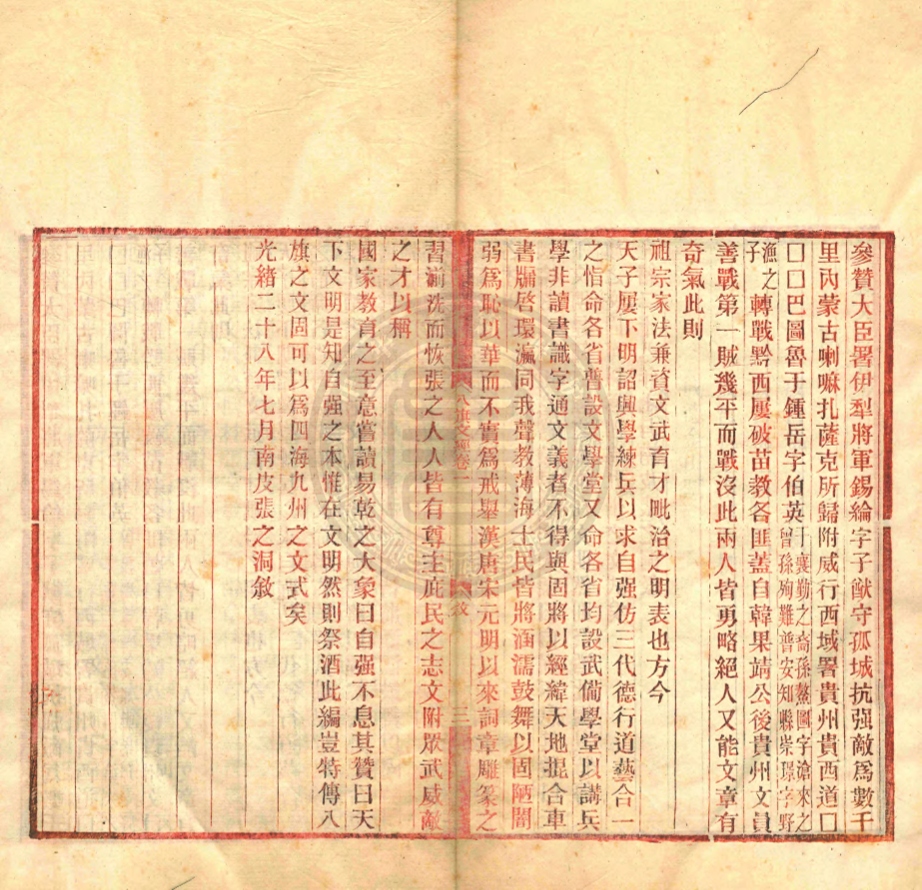 參贊大臣署伊犁將軍錫綸字子猷守孤城抗强敵爲數千
里內蒙古喇嘛扎薩克所歸附威行西域署貴州貴西道囗
囗囗巴圖魯于鍾岳字伯英于襄勤之裔孫鰲圖字滄來之
曾孫殉難普安知縣崇璟字野
漁之
子
轉戰黔西屢破苗教各匪蓋自韓果靖公後貴州文員
善戰第一賊幾平而戰沒此兩人皆勇略絕人又能文章有
奇氣此則
祖宗家法兼資文武育才毗治之明表也方今
天子屢下明詔興學練兵以求自强仿三代德行道藝合一
之恉命各省普設文學堂又命各省均設武備學堂以講兵
學非讀書識字通文義者不得與固將以經緯天地掍合車
書牖啓環瀛同我聲教薄海士民皆將涵濡鼓舞以固陋闇
弱爲恥以華而不實爲戒舉漢唐宋元明以來詞章雕篆之
八旗文經卷
敘
三
習湔洗而恢張之人人皆有尊主庇民之志文附眾武威敵
之才以稱
國家教育之至意嘗讀易乾之大象曰自强不息其贊曰天
下文明是知自强之本惟在文明然則祭酒此編豈特傳八
旗之文固可以爲四海九州之文式矣
光緒二十八年七月南皮張之洞敘